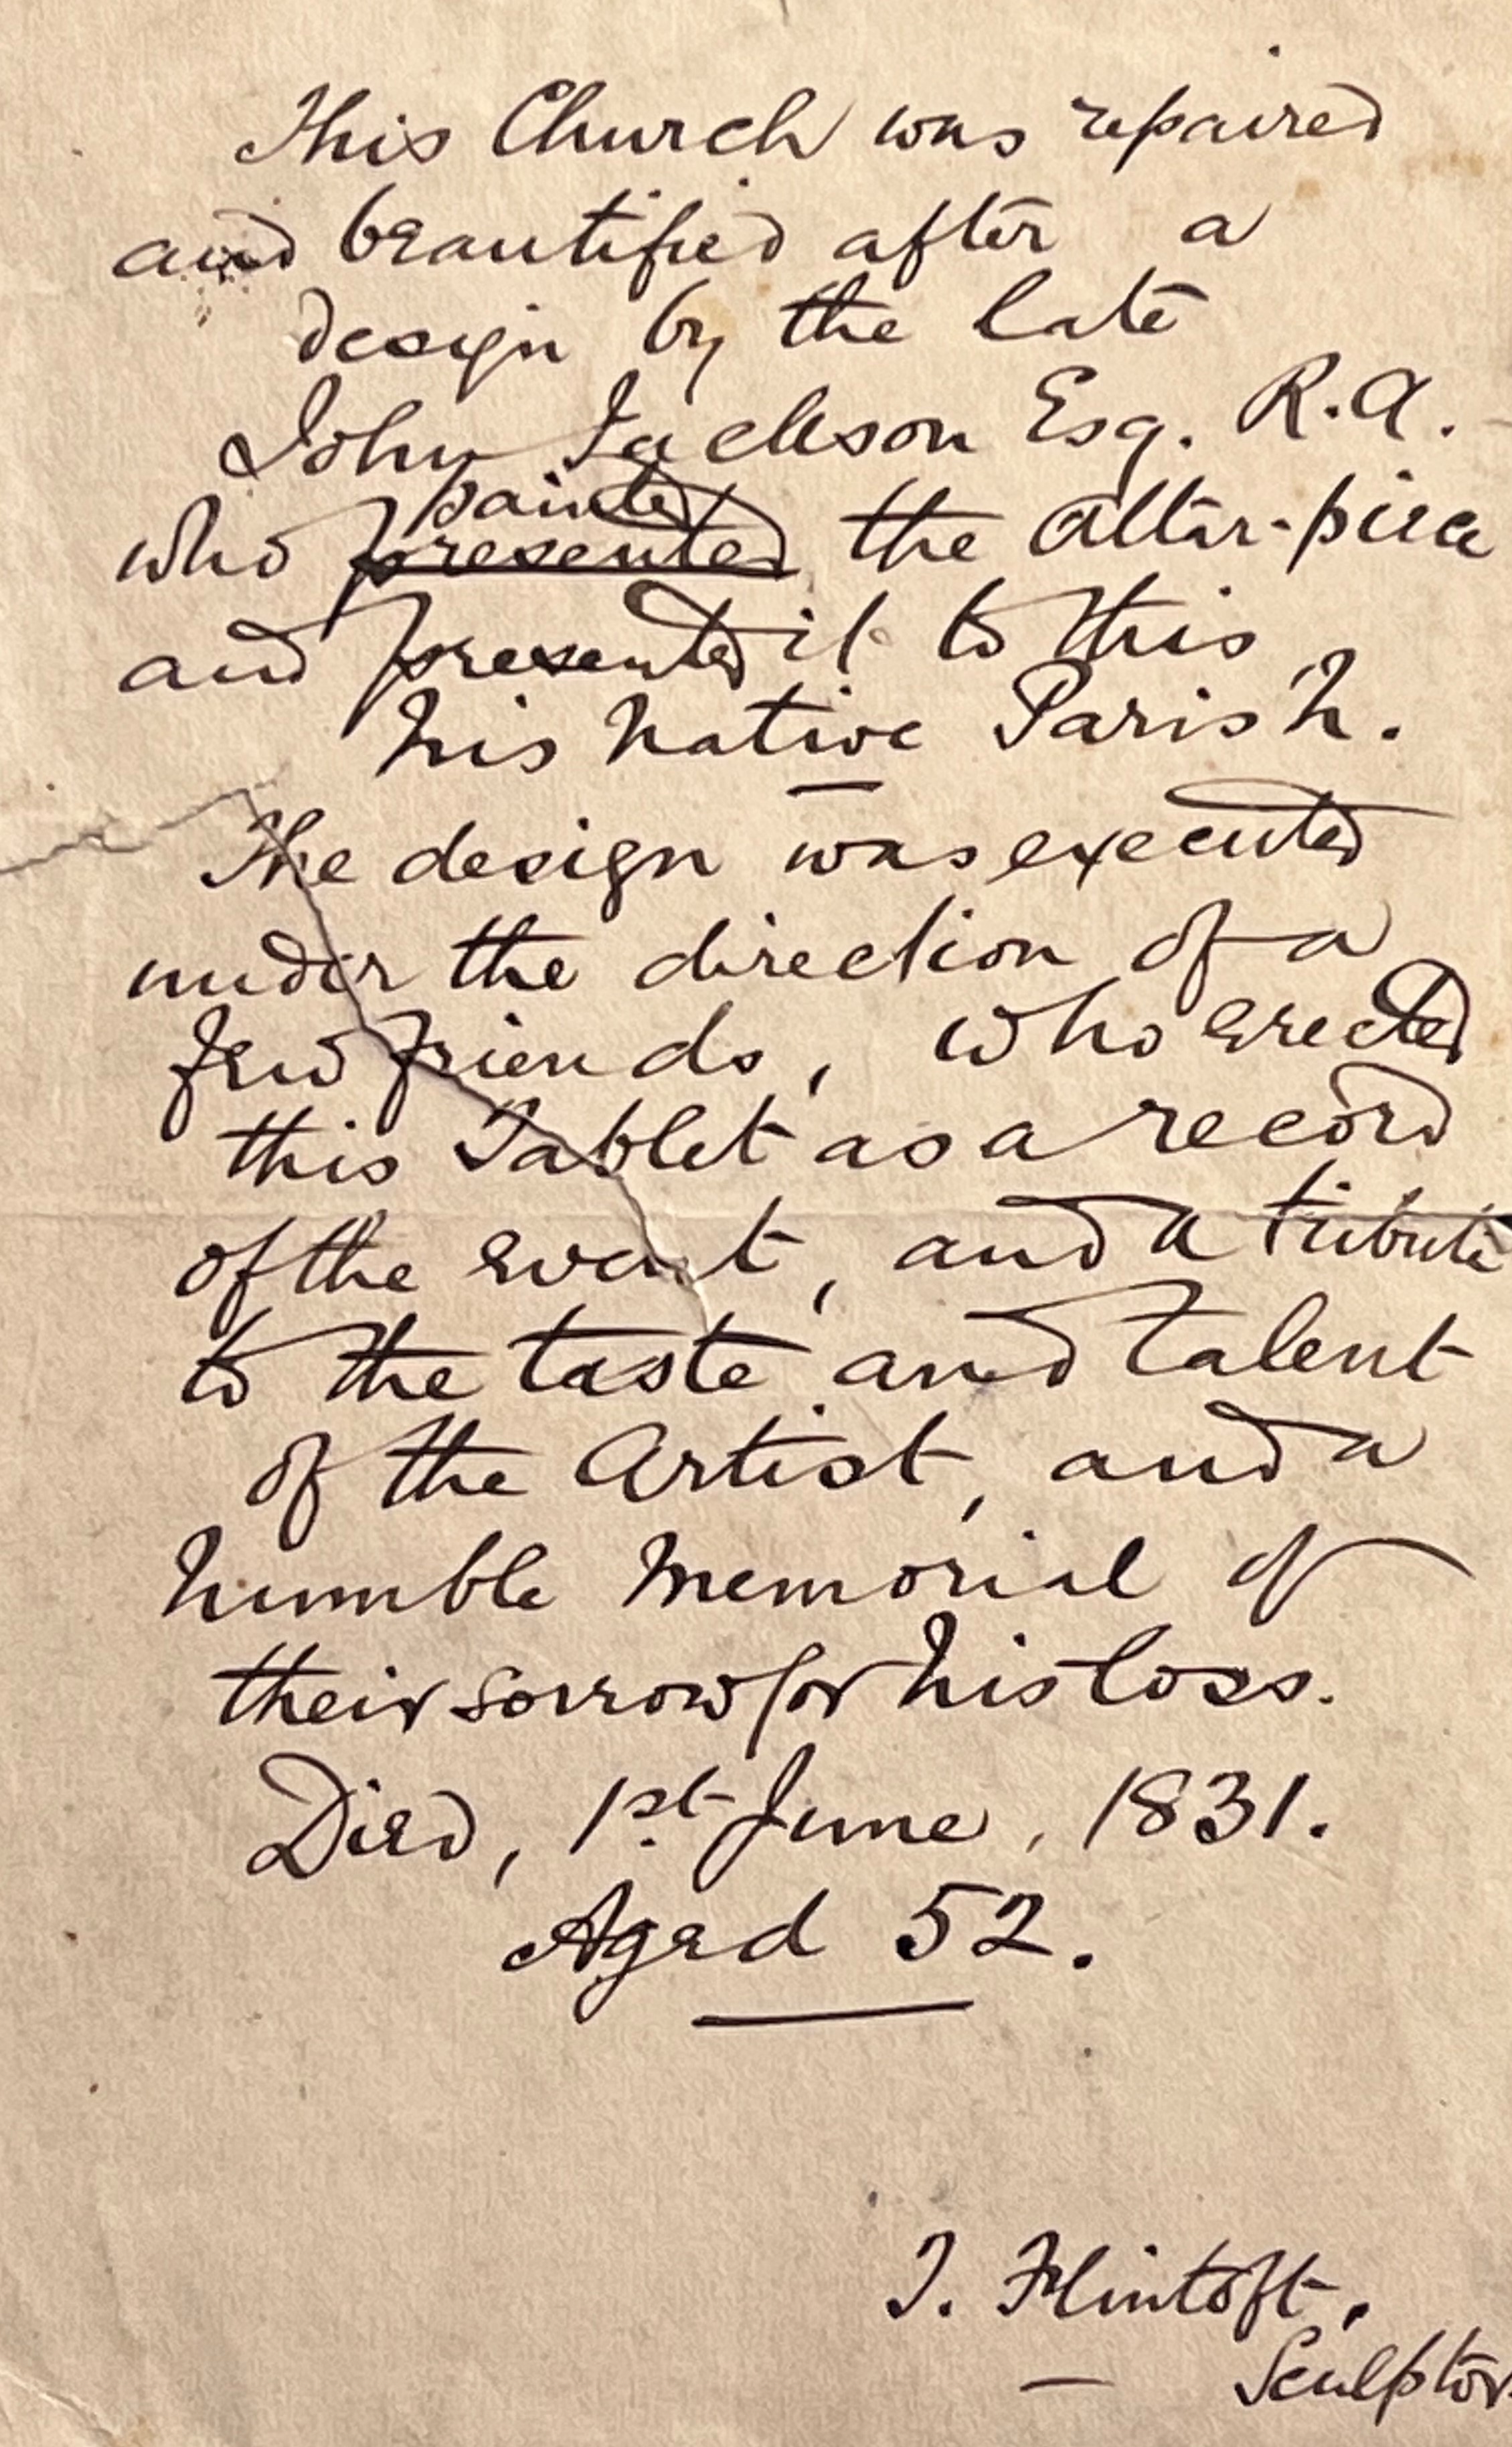 This Church was repaired
and beautified after a
design by the late
John Jackson Esq. R.A.
painted
who presented the Altar-piece
and presented it to this
his native Parish.
The design was executed
under the direction of a
few friends, who erected
this Tablet as a record
of the event, and a tribute
to the taste and talent
of the Artist, and a
humble memorial of
their sorrow for his loss.
Died, 1st June, 1831.
Aged 52.
J. Flintoft,
— Sculptor.